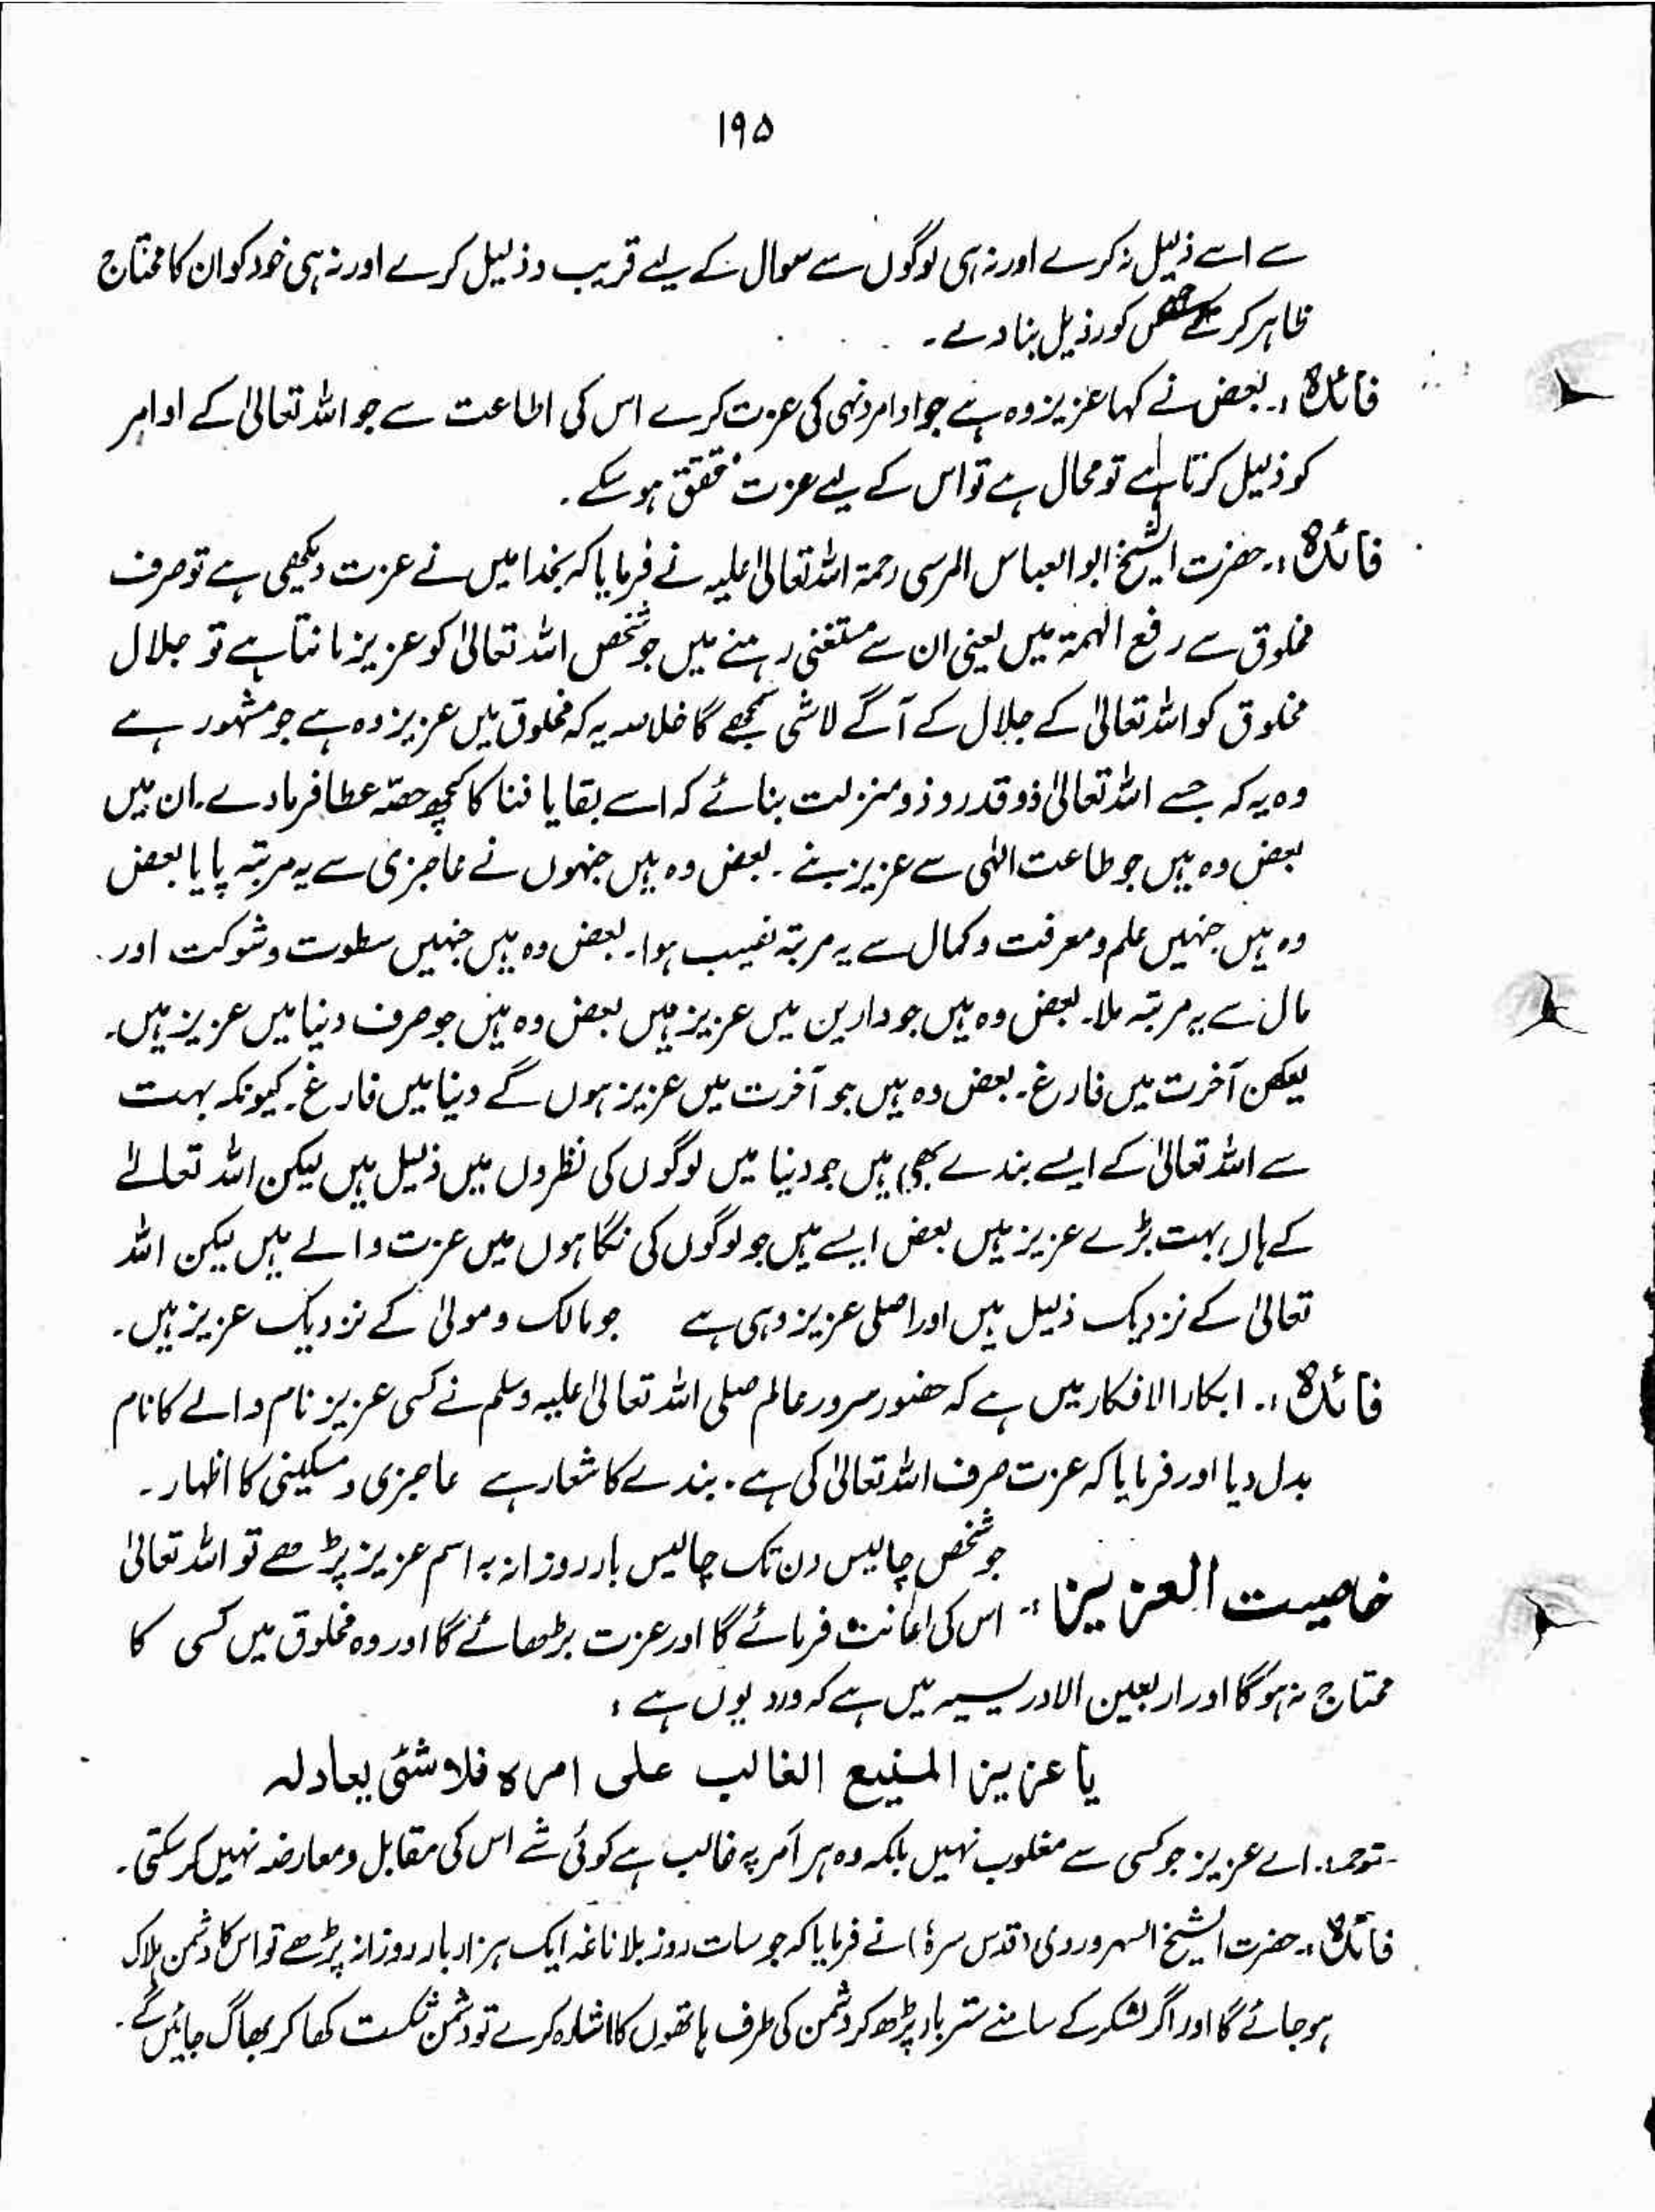 ۱۹۵
سے اسے ذلیل نہ کرے اور نہ ہی لوگوں سے سوال کے لیے قریب و ذلیل کرے اور نہ ہی خود کو ان کا محتاج
ظاہر کر کے کو رذیل بنا دے۔
فائدہ:۔ بعض نے کہا عزیز وہ ہے جو اوامر ونہی کی عزت کرے اس کی اطاعت سے جو اللہ تعالیٰ کے اوامر
کو ذلیل کرتا ہے تو محال ہے تو اس کے لیے عزت محقق ہو سکے۔
فائدہ:۔ حضرت الشیخ ابوالعباس المرسی رحمۃ اللہ تعالیٰ علیہ نے فرمایا کہ بخدا میں نے عزت دیکھی ہے تو صرف
مخلوق سے رفع الہمۃ میں یعنی ان سے مستغنی رہنے میں جو شخص اللہ تعالیٰ کو عزیز مانتا ہے تو جلال
مخلوق کو اللہ تعالیٰ کے جلال کے آگے لاشی سمجھے گا خلاصہ یہ کہ مخلوق میں عزیز وہ ہے جو مشہور ہے
وہ یہ کہ جسے اللہ تعالیٰ ذوقدر و ذومنزلت بنائے کہ اسے بقا یا فنا کا کچھ حصّہ عطا فرما دے۔ ان میں
بعض وہ ہیں جو طاعت الٰہی سے عزیز بنے۔ بعض وہ ہیں جنہوں نے عاجزی سے یہ مرتبہ پایا بعض
وہ ہیں جنہیں علم و معرفت و کمال سے یہ مرتبہ نصیب ہوا۔ بعض وہ ہیں جنہیں سطوت و شوکت اور
مال سے یہ مرتبہ ملا۔ بعض وہ ہیں جو دارین میں عزیز ہیں بعض وہ ہیں جو صرف دنیا میں عزیز ہیں۔
لیکن آخرت میں فارغ۔ بعض وہ ہیں جو آخرت میں عزیز ہوں گے دنیا میں فارغ۔ کیونکہ بہت
سے اللہ تعالیٰ کے ایسے بندے بھی ہیں جو دنیا میں لوگوں کی نظروں میں ذلیل ہیں لیکن اللہ تعالےٰ
کے ہاں بہت بڑے عزیز ہیں بعض ایسے ہیں جو لوگوں کی نگاہوں میں عزت والے ہیں لیکن اللہ
تعالیٰ کے نزدیک ذلیل ہیں اور اصلی عزیز وہی ہے جو مالک و مولیٰ کے نزدیک عزیز ہیں۔
فائدہ:۔ ابکار الافکار میں ہے کہ حضور سرور عالم صلی اللہ تعالیٰ علیہ وسلم نے کسی عزیز نام والے کا نام
بدل دیا اور فرمایا کہ عزت صرف اللہ تعالیٰ کی ہے۔ بندے کا شعار ہے عاجزی و مسکینی کا اظہار۔
خاصیت العزیز:۔ جو شخص چالیس دن تک چالیس بار روزانہ یہ اسم عزیز پڑھے تو اللہ تعالیٰ
اس کی اعانت فرمائے گا اور عزت بڑھائے گا اور وہ مخلوق میں کسی کا
محتاج نہ ہوگا اور اربعین الادریسیہ میں ہے کہ ورد یوں ہے:
یا عزیز المنیع الغالب علی امرہ فلا شئی یعادلہ
ترجمہ:۔ اے عزیز جو کسی سے مغلوب نہیں بلکہ وہ ہر اَمر پہ غالب ہے کوئی شے اس کی مقابل و معارضہ نہیں کر سکتی۔
فائدہ:۔ حضرت الشیخ السہروردی (قدس سرہٗ) نے فرمایا کہ جو سات روز بلا ناغہ ایک ہزار بار روزانہ پڑھے تو اس کا دشمن ہلاک
ہو جائے گا اور اگر لشکر کے سامنے ستر بار پڑھ کر دشمن کی طرف ہاتھوں کا اشارہ کرے تو دشمن شکست کھا کر بھاگ جائیں گے۔